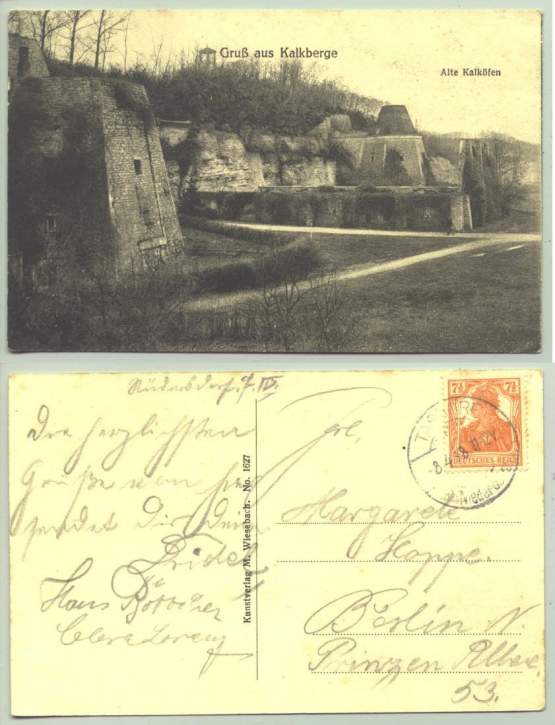 Gruß aus Kalkberge
Alte Kalköfen
Rüdersdorf,
Die herzlichsten
Grüße von
sendet Dir Dein
Fridel
Hans Böttcher
Clara Lorenz
Kunstverlag M. Wiesebach. No. 1627
7½ 7½
DEUTSCHES REICH
Frl.
Margarete
Hoppe.
Berlin N.
Prinzen Allee
53.